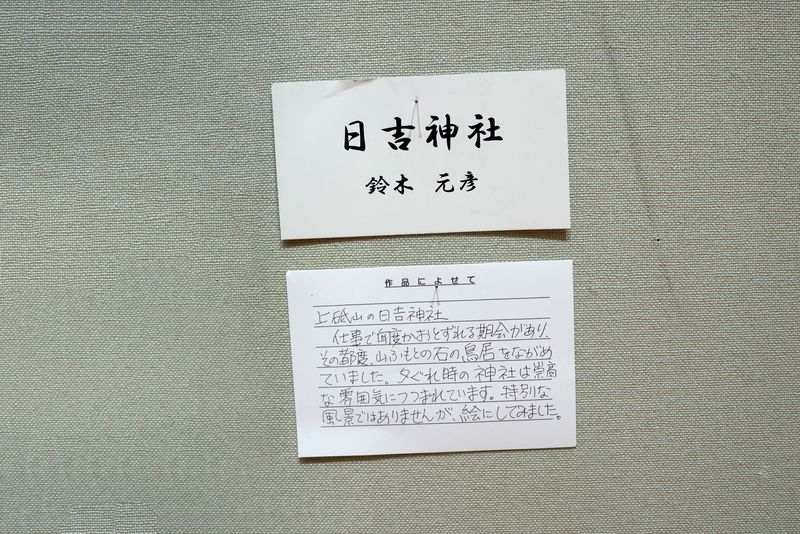 日吉神社
鈴木 元彦
作品によせて
上砥山の日吉神社
仕事で何度かおとずれる期会があり、
その都度、山ふもとの石の鳥居をながめ
ていました。夕ぐれ時の神社は崇高
な雰囲気につつまれています。特別な
風景ではありませんが、絵にしてみました。